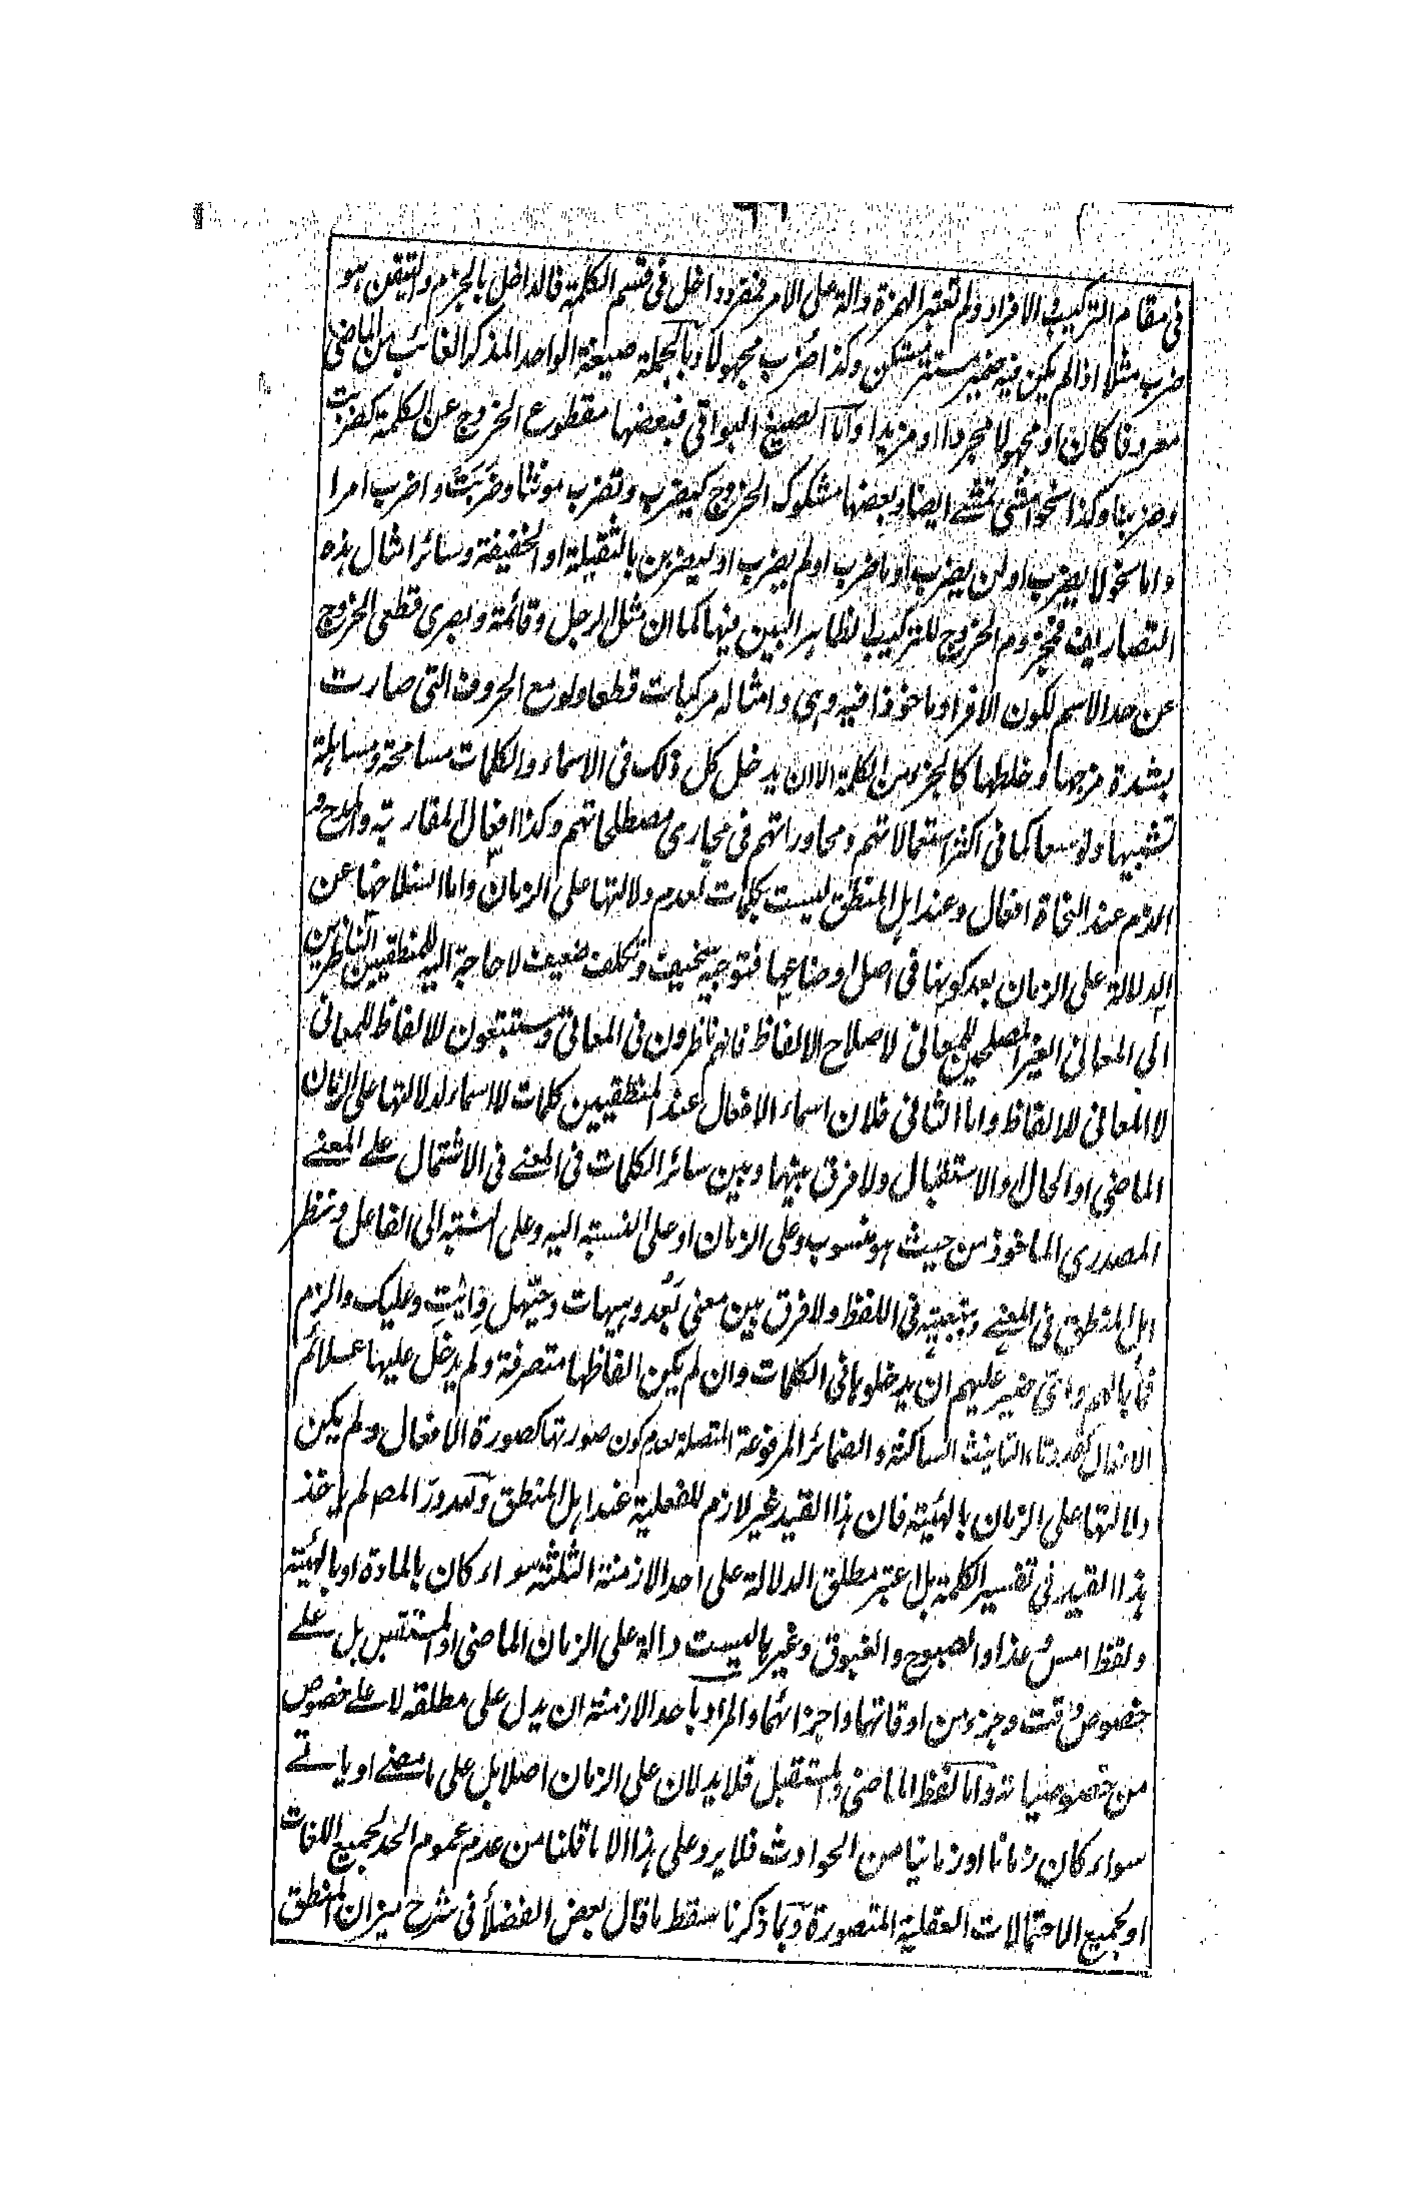 في مقام التركيب الافراد ولم تعتبر الهمزة دالة على الامر فمفرد داخل في قسم الكلمة فالداخل بالجزم والتيقن هو
ضرب مثلا اذا لم يكن فيه ضمير مستتر مستكن وكذا ضرب مجهولا وبالجملة صيغة الواحد المذكر الغائب من الماضي
معروفا كان او مجهولا مجردا او مزيدا واما الصيغ البواقي فبعضها مقطوع الخروج عن الكلمة كضربت
وضربنا وكذا نحو امشى تمشى ايضا وبعضها مشكوك الخروج كيضرب وتضرب مونثا وضربت واضرب امرا
واما نحو لا يضرب اولن يضرب او ما ضرب اولم يضرب او ليضربن بالثقيلة او الخفيفة وسائر امثال هذه
التصاريف فمجزوم الخروج للتركيب الظاهر البين فيها كما ان مثل الرجل وقائمة وبصرى قطعى الخروج
عن حد الاسم لكون الافراد ماخوذا فيه وهى وامثاله مركبات قطعا ولو مع الحروف التى صارت
بشدة مزجها وخلطها كالجزء من الكلمة الا ان يدخل كل ذلك في الاسماء والكلمات مسامحة ومساهلة
تشبيها وتوسعا كما في اكثر استعمالاتهم ومحاوراتهم في مجارى مصطلحاتهم وكذا افعال المقاربة والمدح و
الذم عند النحاة افعال وعند اهل المنطق ليست بكلمات لعدم دلالتها على الزمان واما انسلاخها عن
الدلالة على الزمان بعد كونها في اصل اوضاعها فتوجيه سخيف وتكلف ضعيف لا حاجة اليه للمنطقيين الناظرين
الى المعانى الغير المصلحين للمعانى لاصلاح الالفاظ فانهم ناظرون في المعانى ومستتبعون للالفاظ للمعانى
لا المعانى للالفاظ واما الثانى فلان اسماء الافعال عند المنطقيين كلمات لا اسماء لدلالتها على الزمان
الماضى او الحال والاستقبال ولا فرق بينها وبين سائر الكلمات في المعنے في الاشتمال علے المعنے
المصدرى الماخوذ من حيث هو منسوب وعلى الزمان او على النسبة اليه وعلى النسبة الى الفاعل ونظر
اهل المنطق في المعنے وبتبعيته في اللفظ ولا فرق بين معنى بَعُد وهيهات وحيّهل وايت وعليك والزم
فما بالهم واى ضير عليهم ان يدخلوها في الكلمات وان لم يكن الفاظها متصرفة ولم يدخل عليها علائم
الافعال كقد وتاء التانيث الساكنة والضمائر المرفوعة المتصلة لعدم كون صورتها كصورة الافعال ولم يكن
دلالتها على الزمان بالهيئة فان هذا القيد غير لازم للفعلية عند اهل المنطق ولله در المص لم ياخذ
هذا القيد في تفسير الكلمة بل اعتبر مطلق الدلالة على احد الازمنة الثلثة سواء كان بالمادة او بالهيئة
ولفظ امس وغدا والصبوح والغبوق وغيرها ليست دالة على الزمان الماضى او المستقبل بل علے
خصوص وقت وجزء من اوقاتهما واجزائهما والمراد باحد الازمنة ان يدل على مطلقه لا علے خصوص
من خصوصياته واما لفظ الماضى والمستقبل فلا يدلان على الزمان اصلا بل على ما مضے او ياتے
سواء كان زمانا او زمانيا من الحوادث فلا يرد على هذا الا ما قلنا من عدم عموم الحد لجميع اللغات
او لجميع الاحتمالات العقلية المتصورة وبما ذكرنا سقط ما قال بعض الفضلأ في شرح ميزان المنطق